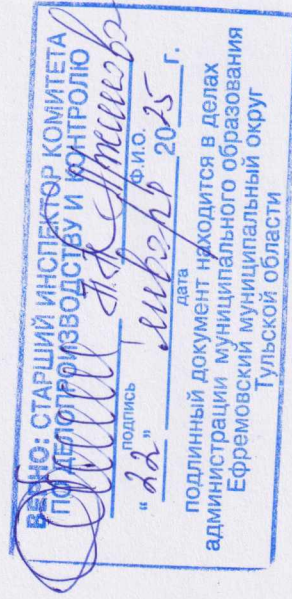 ВЕРНО: СТАРШИЙ ИНСПЕКТОР КОМИТЕТА
ПО ДЕЛОПРОИЗВОДСТВУ И КОНТРОЛЮ
подпись Ф.И.О.
"22" января 2025 г.
дата
подлинный документ находится в делах
администрации муниципального образования
Ефремовский муниципальный округ
Тульской области